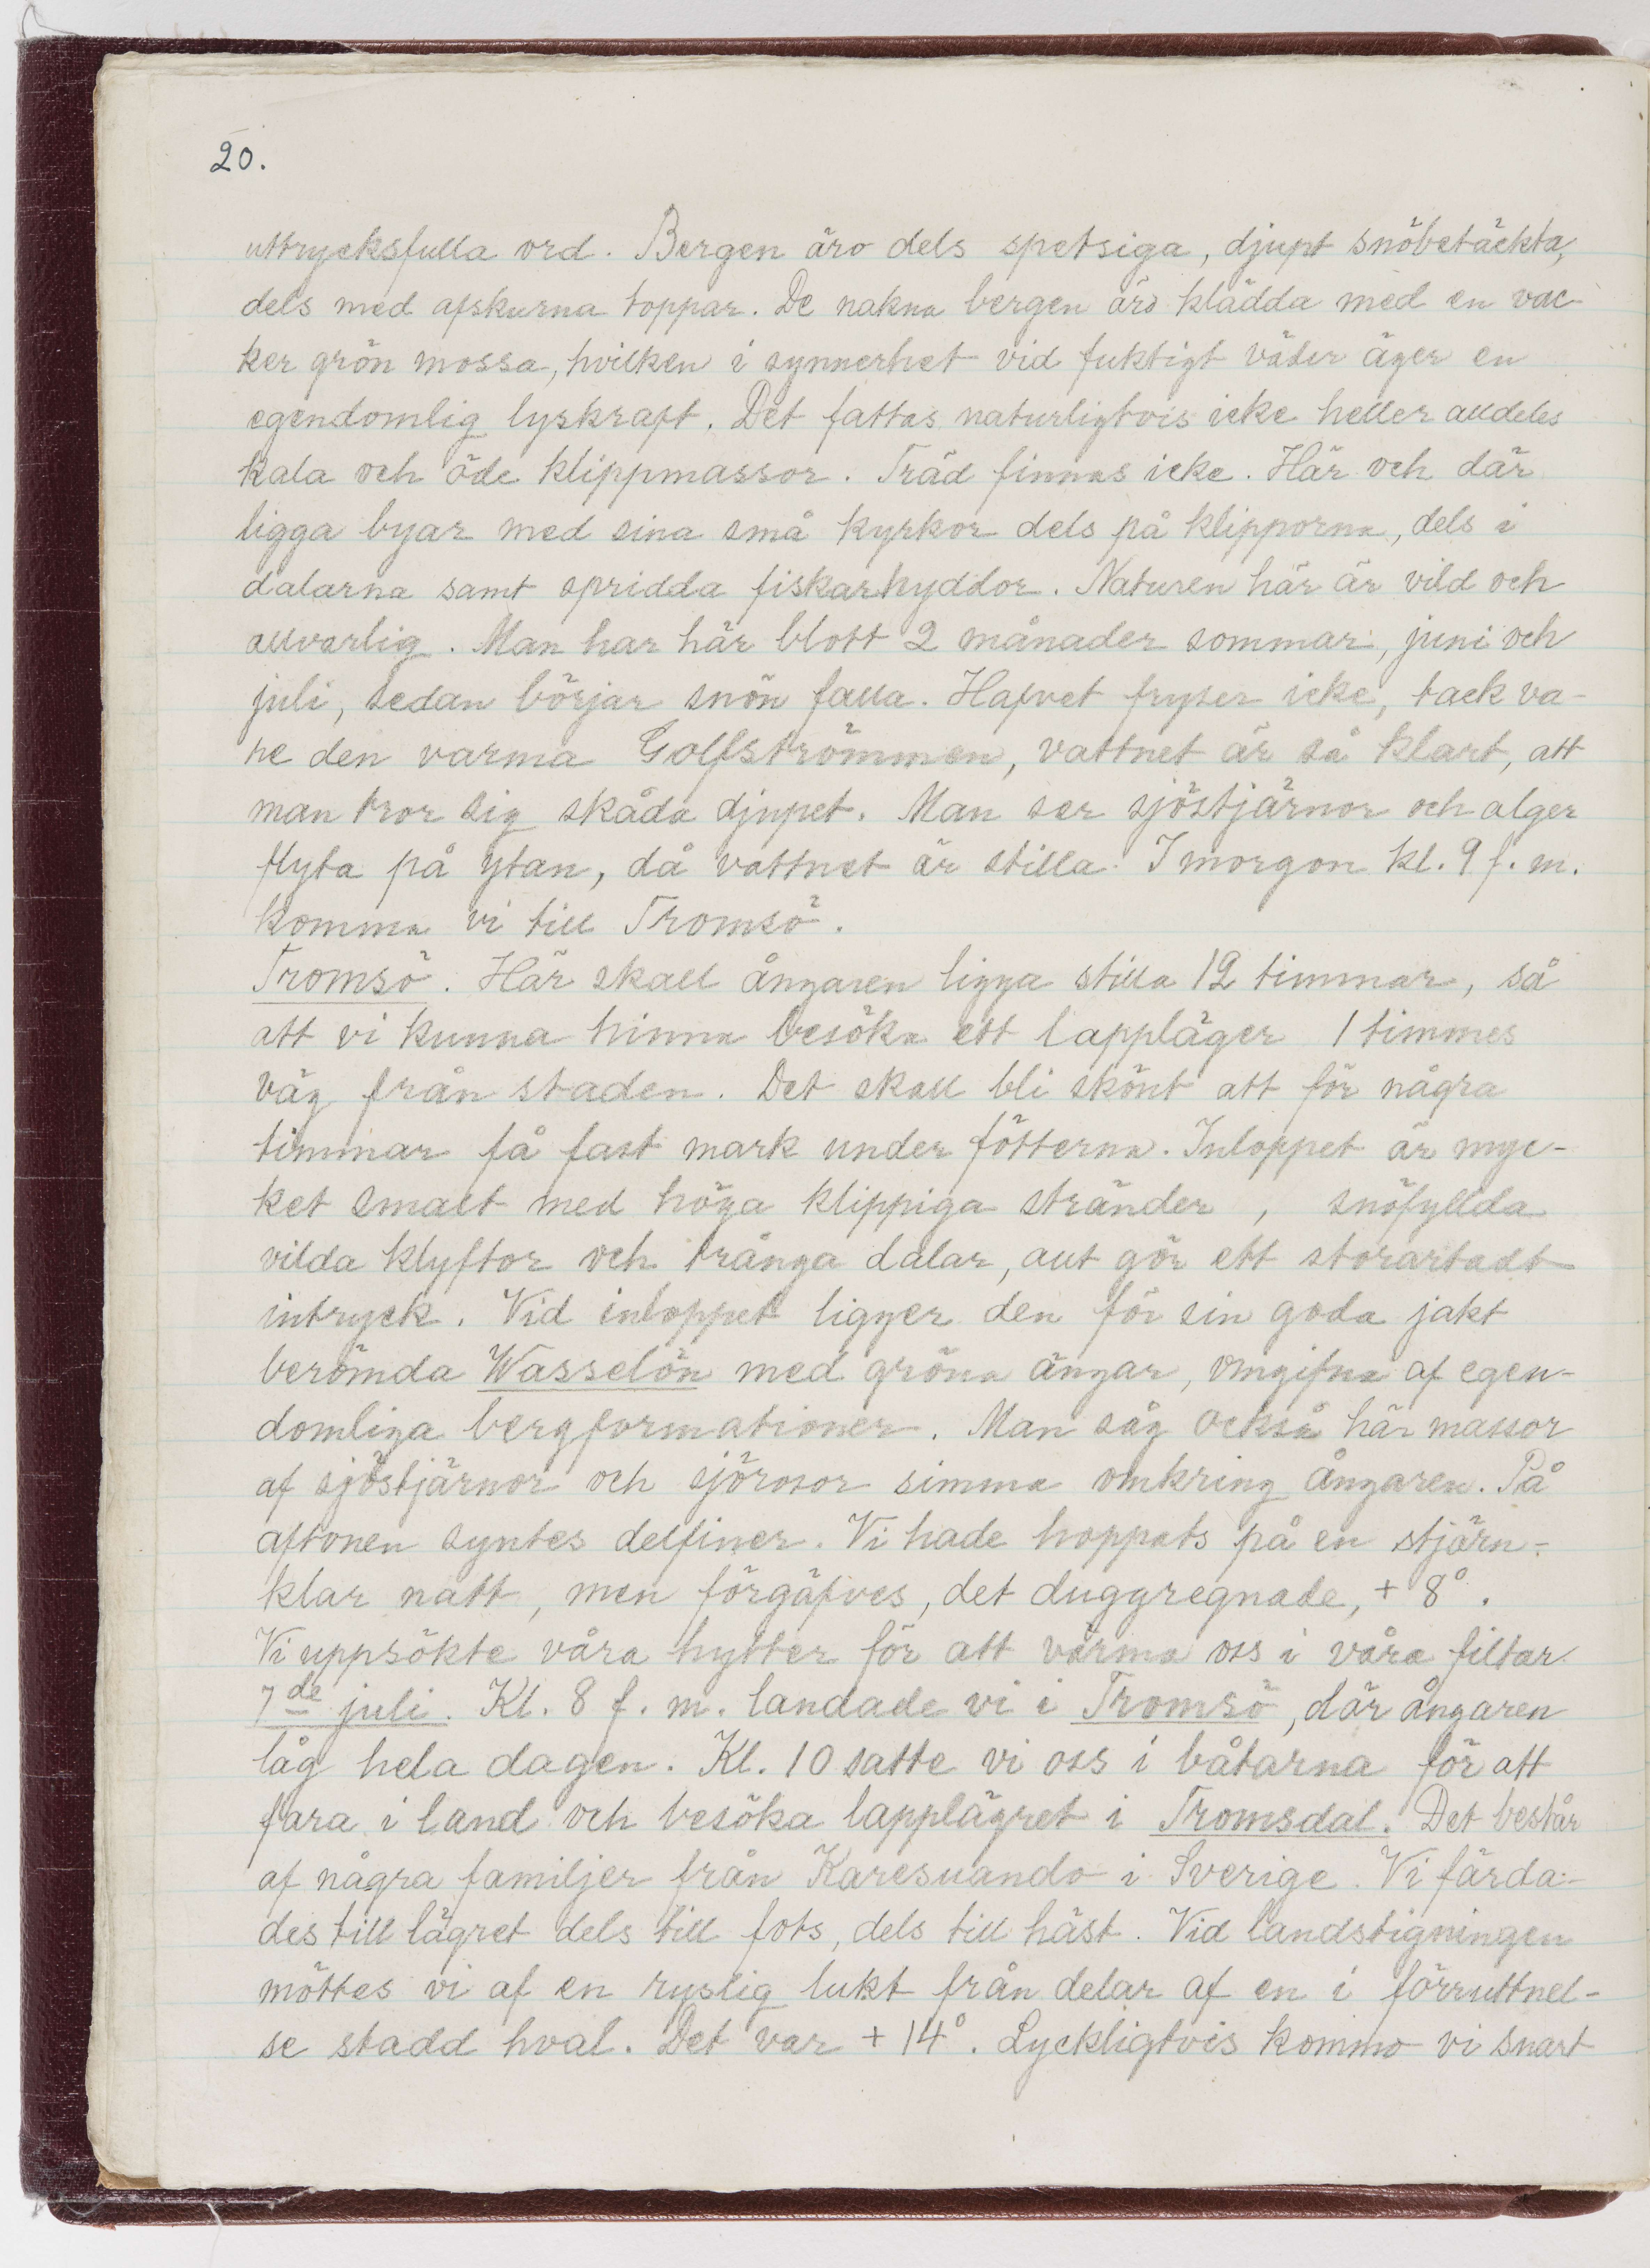 20.
uttrycksfulla ord. Bergen äro dels spetsiga, djupt snöbetäckta,
dels med afskurna toppar. De nakna bergen äro klädda med en vac-
ker grön mossa, hvilken i synnerhet vid fuktigt väder äger en
egendomlig lyskraft. Det fattas naturligtvis icke heller alldeles
kala och öde klippmassor. Träd finnas icke. Här och där
ligga byar med sina små kyrkor dels på klipporna, dels i
dalarna samt spridda fiskarhyddor. Naturen här är vild och
allvarlig. Man har här blott 2 månader sommar, juni och
juli, sedan börjar snön falla. Hafvet fryser icke, tack va-
re den varma Golfströmmen, vattnet är så klart, att
man tror sig skåda djupet. Man ser sjöstjärnor och alger
flyta på ytan, då vattnet är stilla. I morgon kl. 9 f. m.
komma vi till Tromsö.
Tromsö. Här skall ångaren ligga stilla 12 timmar, så
att vi kunna hinna besöka ett lappläger 1 timmes
väg från staden. Det skall bli skönt att för några
timmar få fast mark under fötterna. Inloppet är myc-
ket smalt med höga klippiga stränder, snöfyllda
vilda klyftor och trånga dalar, allt gör ett storartadt
intryck. Vid inloppet ligger den för sin goda jakt
berömda Wasselön med gröna ängar, omgifna af egen-
domliga bergformationer. Man såg också här massor
af sjöstjärnor och sjörosor simma omkring ångaren. På
aftonen syntes delfiner. Vi hade hoppats på en stjärn-
klar natt, men förgäfves, det duggregnade, + 8°.
Vi uppsökte våra hytter för att värma oss i våra filtar.
7de juli. Kl. 8 f. m. landade vi i Tromsö, där ångaren
låg hela dagen. Kl. 10 satte vi oss i båtarna för att
fara i land och besöka lapplägret i Tromsdal. Det består
af några familjer från Karesuando i Sverige. Vi färda-
des till lägret dels till fots, dels till häst. Vid landstigningen
möttes vi af en ryslig lukt från delar af en i förruttnel-
se stadd hval. Det var + 14°. Lyckligtvis kommo vi snart